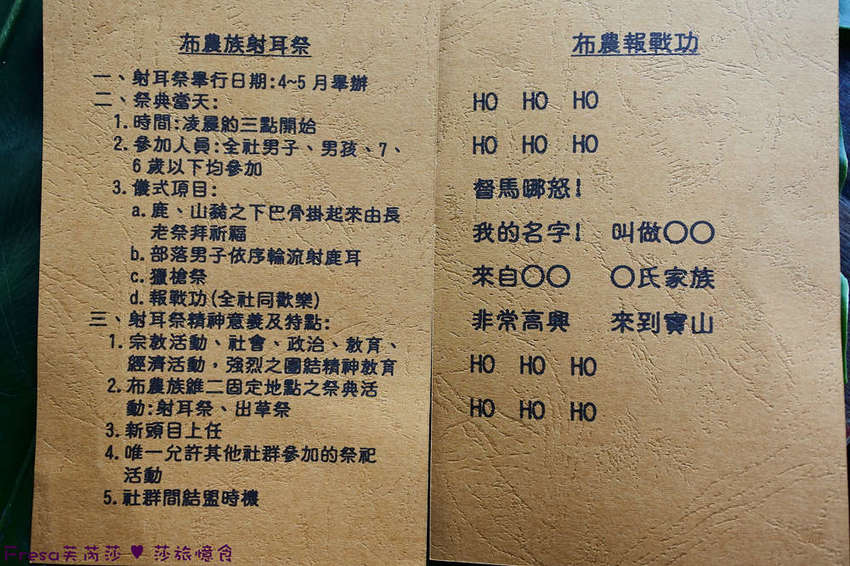 布農族射耳祭
一、射耳祭舉行日期:4~5月舉辦
二、祭典當天:
1.時間:凌晨約三點開始
2.參加人員:全社男子、男孩、7、
6歲以下均參加
3.儀式項目:
a.鹿、山豬之下巴骨掛起來由長
老祭拜祈福
b.部落男子依序輪流射鹿耳
c.獵槍祭
d.報戰功(全社同歡樂)
三、射耳祭精神意義及特點:
1.宗教活動、社會、政治、教育、
經濟活動，強烈之團結精神教育
2.布農族維二固定地點之祭典活
動:射耳祭、出草祭
3.新頭目上任
4.唯一允許其他社群參加的祭祀
活動
5.社群間結盟時機
布農報戰功
HO HO HO
HO HO HO
督馬哪怒!
我的名字! 叫做〇〇
來自〇〇 〇氏家族
非常高興 來到寶山
HO HO HO
HO HO HO
Fresa芙芮莎 ♥ 莎旅憶食